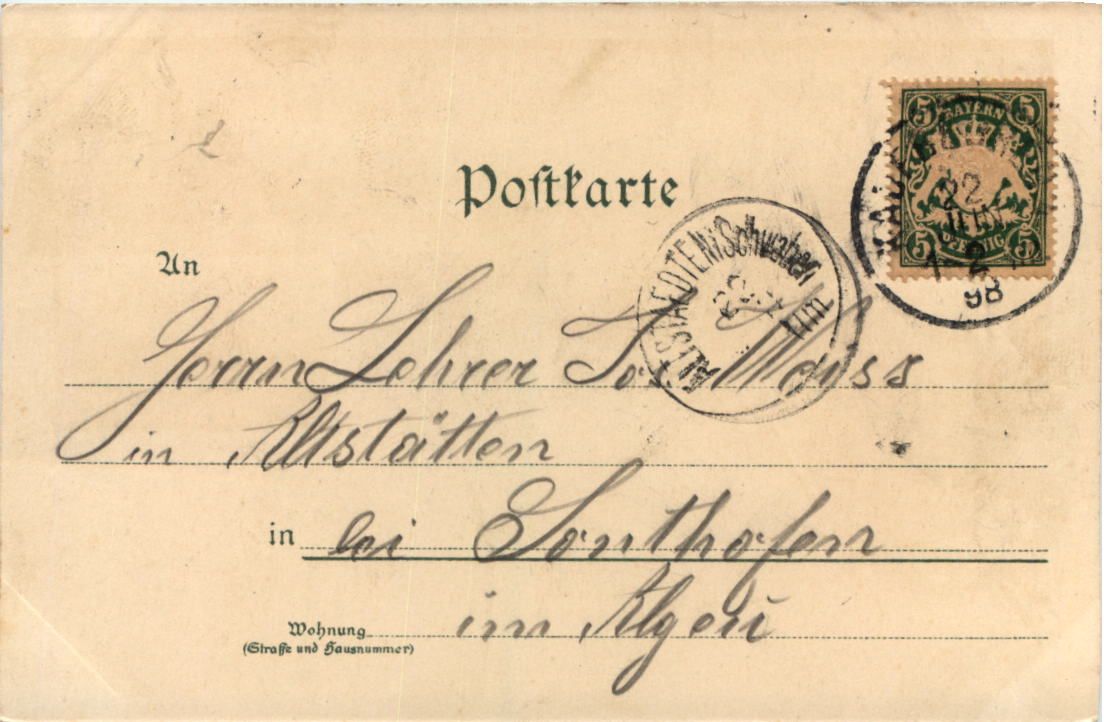 5 BAYERN 5
5 PFENNIG 5
22
JUN
98
Postkarte
ALTSTAEDTEN Schwaben
An
Herrn Lehrer Jos. Weiss
in Altstätten
in bei Sonthofen
Wohnung im Algeu
(Straße und Hausnummer)